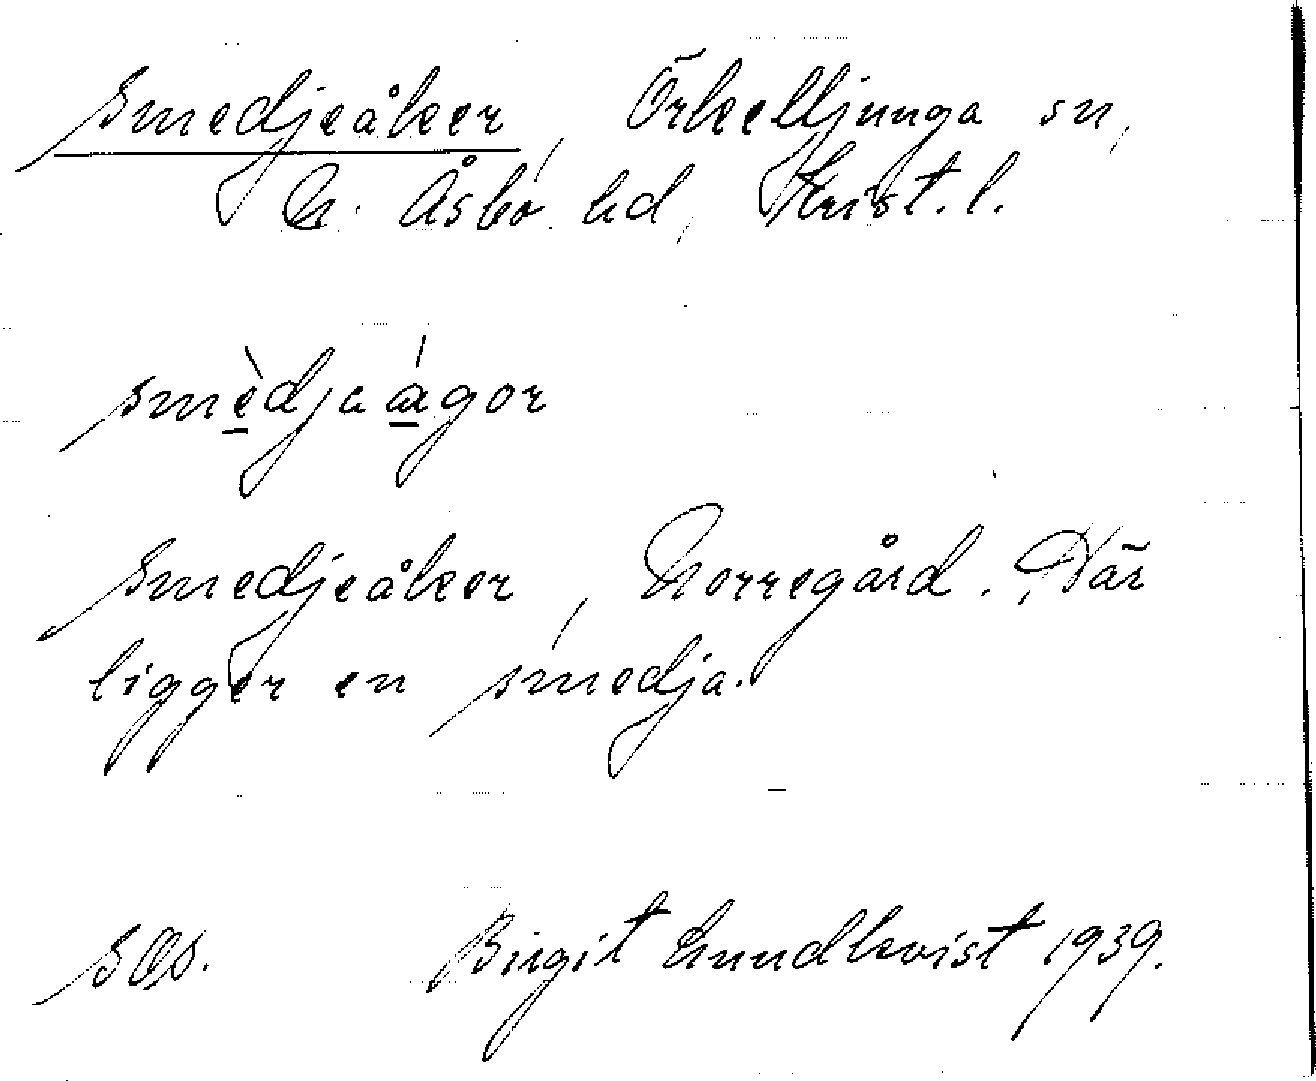 Smedjeåker, Örkelljunga sn,
N. Åsbo hd, Krist. l.
smèdjaágor
Smedjeåker, Norregård. Där
ligger en smedja.
Birgit Lundkvist 1939.